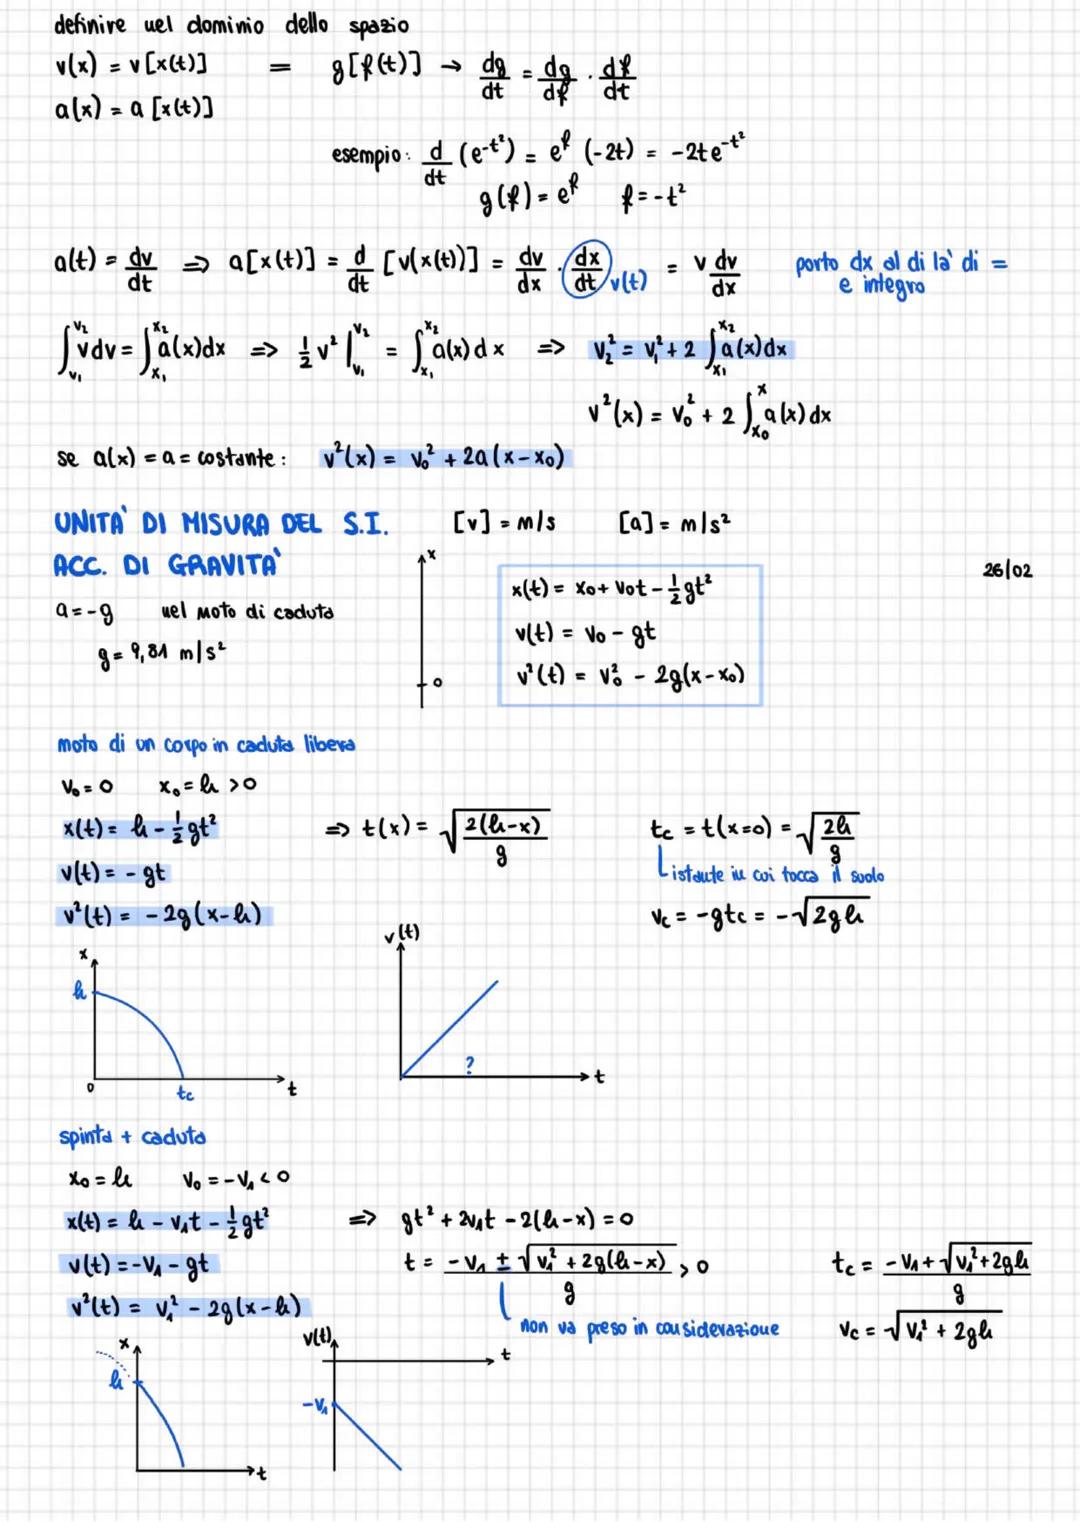 definire nel dominio dello spazio
v(x) = v[x(t)] = g[f(t)] → dg/dt = dg/df · df/dt
a(x) = a [x(t)]
esempio: d/dt (e^-t²) = e^f (-2t) = -2te^-t²
g(f) = e^f f = -t²
a(t) = dv/dt ⇒ a[x(t)] = d/dt [v(x(t))] = dv/dx · dx/dt v(t) = v dv/dx porto dx al di la' di =
e integro
∫_v₁^v₂ vdv = ∫_x₁^x₂ a(x)dx ⇒ ½ v² |_v₁^v₂ = ∫_x₁^x₂ a(x)dx ⇒ v₂² = v₁² + 2 ∫_x₁^x₂ a(x)dx
v²(x) = v₀² + 2 ∫_x₀^x a(x)dx
se a(x) = a = costante: v²(x) = v₀² + 2a(x-x₀)
UNITA' DI MISURA DEL S.I. [v] = m/s [a] = m/s²
ACC. DI GRAVITA'
26/02
a = -g nel moto di caduta
g = 9,81 m/s²
x
0
x(t) = x₀ + v₀t - ½gt²
v(t) = v₀ - gt
v²(t) = v₀² - 2g(x-x₀)
moto di un corpo in caduta libera
v₀ = 0 x₀ = h > 0
x(t) = h - ½gt² ⇒ t(x) = √(2(h-x)/g) tc = t(x=0) = √(2h/g)
istante in cui tocca il suolo
v(t) = - gt
v²(t) = - 2g(x-h) vc = -gtc = -√2gh
x
h
0
tc
t
v(t)
?
t
spinta + caduta
x₀ = h v₀ = -v₁ < 0
x(t) = h - v₁t - ½gt² ⇒ gt² + 2v₁t - 2(h-x) = 0
v(t) = -v₁ - gt t = (-v₁ ± √(v₁² + 2g(h-x)))/g > 0 tc = (-v₁ + √(v₁² + 2gh))/g
v²(t) = v₁² - 2g(x-h) non va preso in considerazione vc = √(v₁² + 2gh)
x
h
t
v(t)
t
-v₁